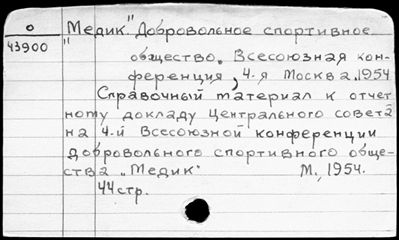 О
43900
"Медик" Добровольное спортивное
общество. Всесоюзная кон-
ференция, 4-я Москва. 1954
Справочный материал к отчет
ному докладу Центрального совета
на 4-й Всесоюзной конференции
добровольного спортивного обще-
ства „Медик" М., 1954.
44 стр.